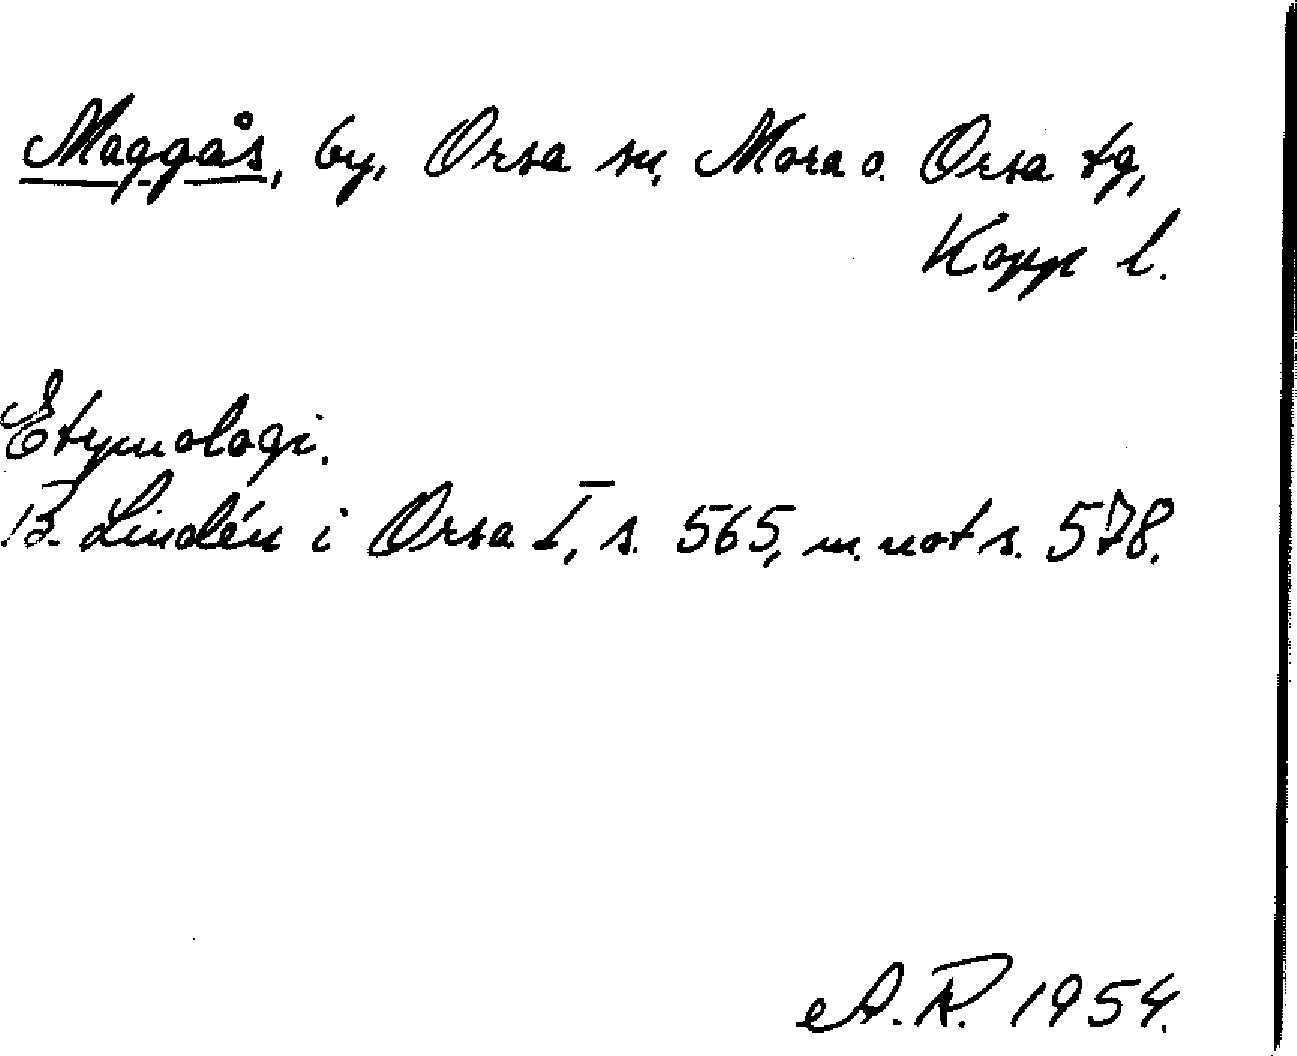 Maggås, by, Orsa sn, Mora o. Orsa tg,
Kopp l.
Etymologi.
B. Lindén i Orsa I, s. 565, m. not s. 578.
A.R. 1954.